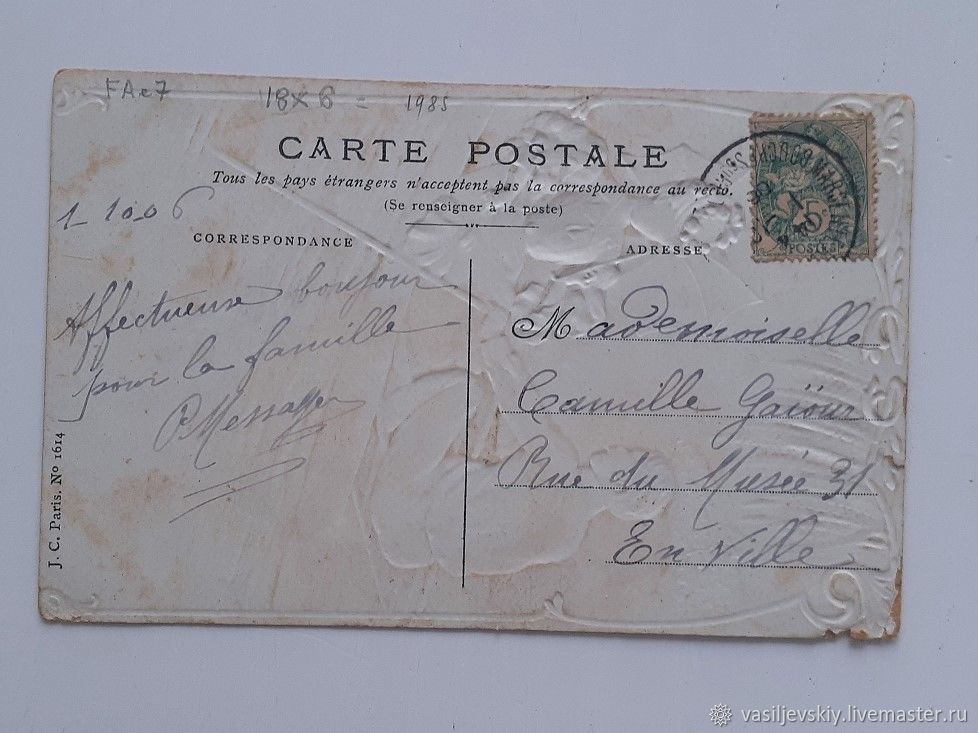 FAc7 18x6 = 1985
CARTE POSTALE
Tous les pays étrangers n'acceptent pas la correspondance au recto.
(Se renseigner à la poste)
1-10 06
CORRESPONDANCE
Affectueuse bonjour
pour la famille
J. C. Paris. Nº 1614
ADRESSE
Mademoiselle
Camille
Rue du Musée 31
En Ville
5
POSTES
vasiljevskiy.livemaster.ru